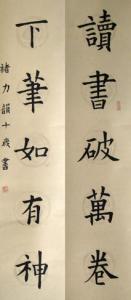 讀書破萬卷
下筆如有神
褚力韻十歲書